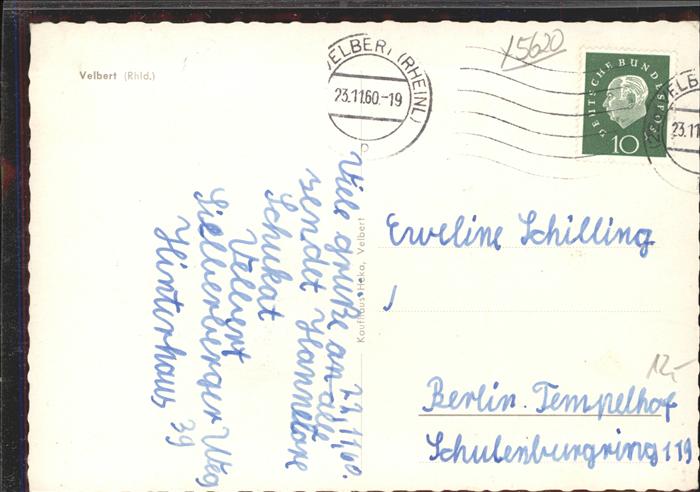 Velbert (Rhld.)
VELBERT (RHEINL)
23.11.60.-19
x5620
DEUTSCHE BUNDESPOST
10
23.11
22.11.60.
Viele grüße an alle
sendet Hannelore
Schukat
Velbert
Silberberger Weg
39
Hinterhaus
Kaufhaus Heka, Velbert
Eweline Schilling
12,-
Berlin. Tempelhof
Schulenburgring 119